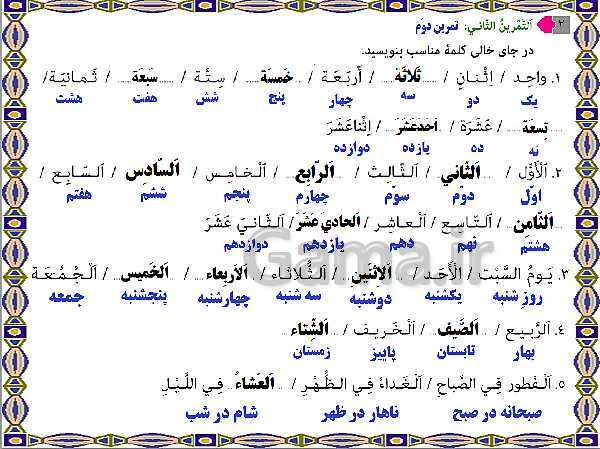 ٢ اَلتَّمْرينُ الثّاني: تمرین دوّم
در جای خالی کلمهٔ مناسب بنویسید.
١. واحِد / اِثْنانِ / ثَلاثَة / أَربَعَة / خَمسَة / سِتَّة / سَبْعَة / ثَمانيَة/
یک دو سه چهار پنج شش هفت هشت
تِسعَة / عَشَرَة / أَحَدَعَشَرَ / اِثْناعَشَرَ
نه ده یازده دوازده
٢. اَلْأَوَّل / اَلثّاني / اَلثّالِث / اَلرّابِع / اَلْخامِس / اَلسّادِس / اَلسّابِع /
اوّل دوّم سوّم چهارم پنجم ششم هفتم
اَلثّامِن / اَلتّاسِع / اَلْعاشِر / اَلحادي عَشَرَ / اَلثّانيَ عَشَرَ
هشتم نهم دهم یازدهم دوازدهم
٣. يَومُ السَّبْت / اَلْأَحَد / اَلاثنَين / اَلثُّلاثاء / اَلأربِعاء / اَلخَميس / اَلْجُمُعَة
روز شنبه یکشنبه دوشنبه سه شنبه چهارشنبه پنجشنبه جمعه
٤. اَلرَّبيع / اَلصَّيف / اَلْخَريف / اَلشِّتاء
بهار تابستان پاییز زمستان
٥. اَلْفَطور فِي الصَّباحِ / اَلْغَداءُ فِي الظُّهْرِ / اَلعَشاءُ فِي اللَّيْلِ
صبحانه در صبح ناهار در ظهر شام در شب
Gama.ir